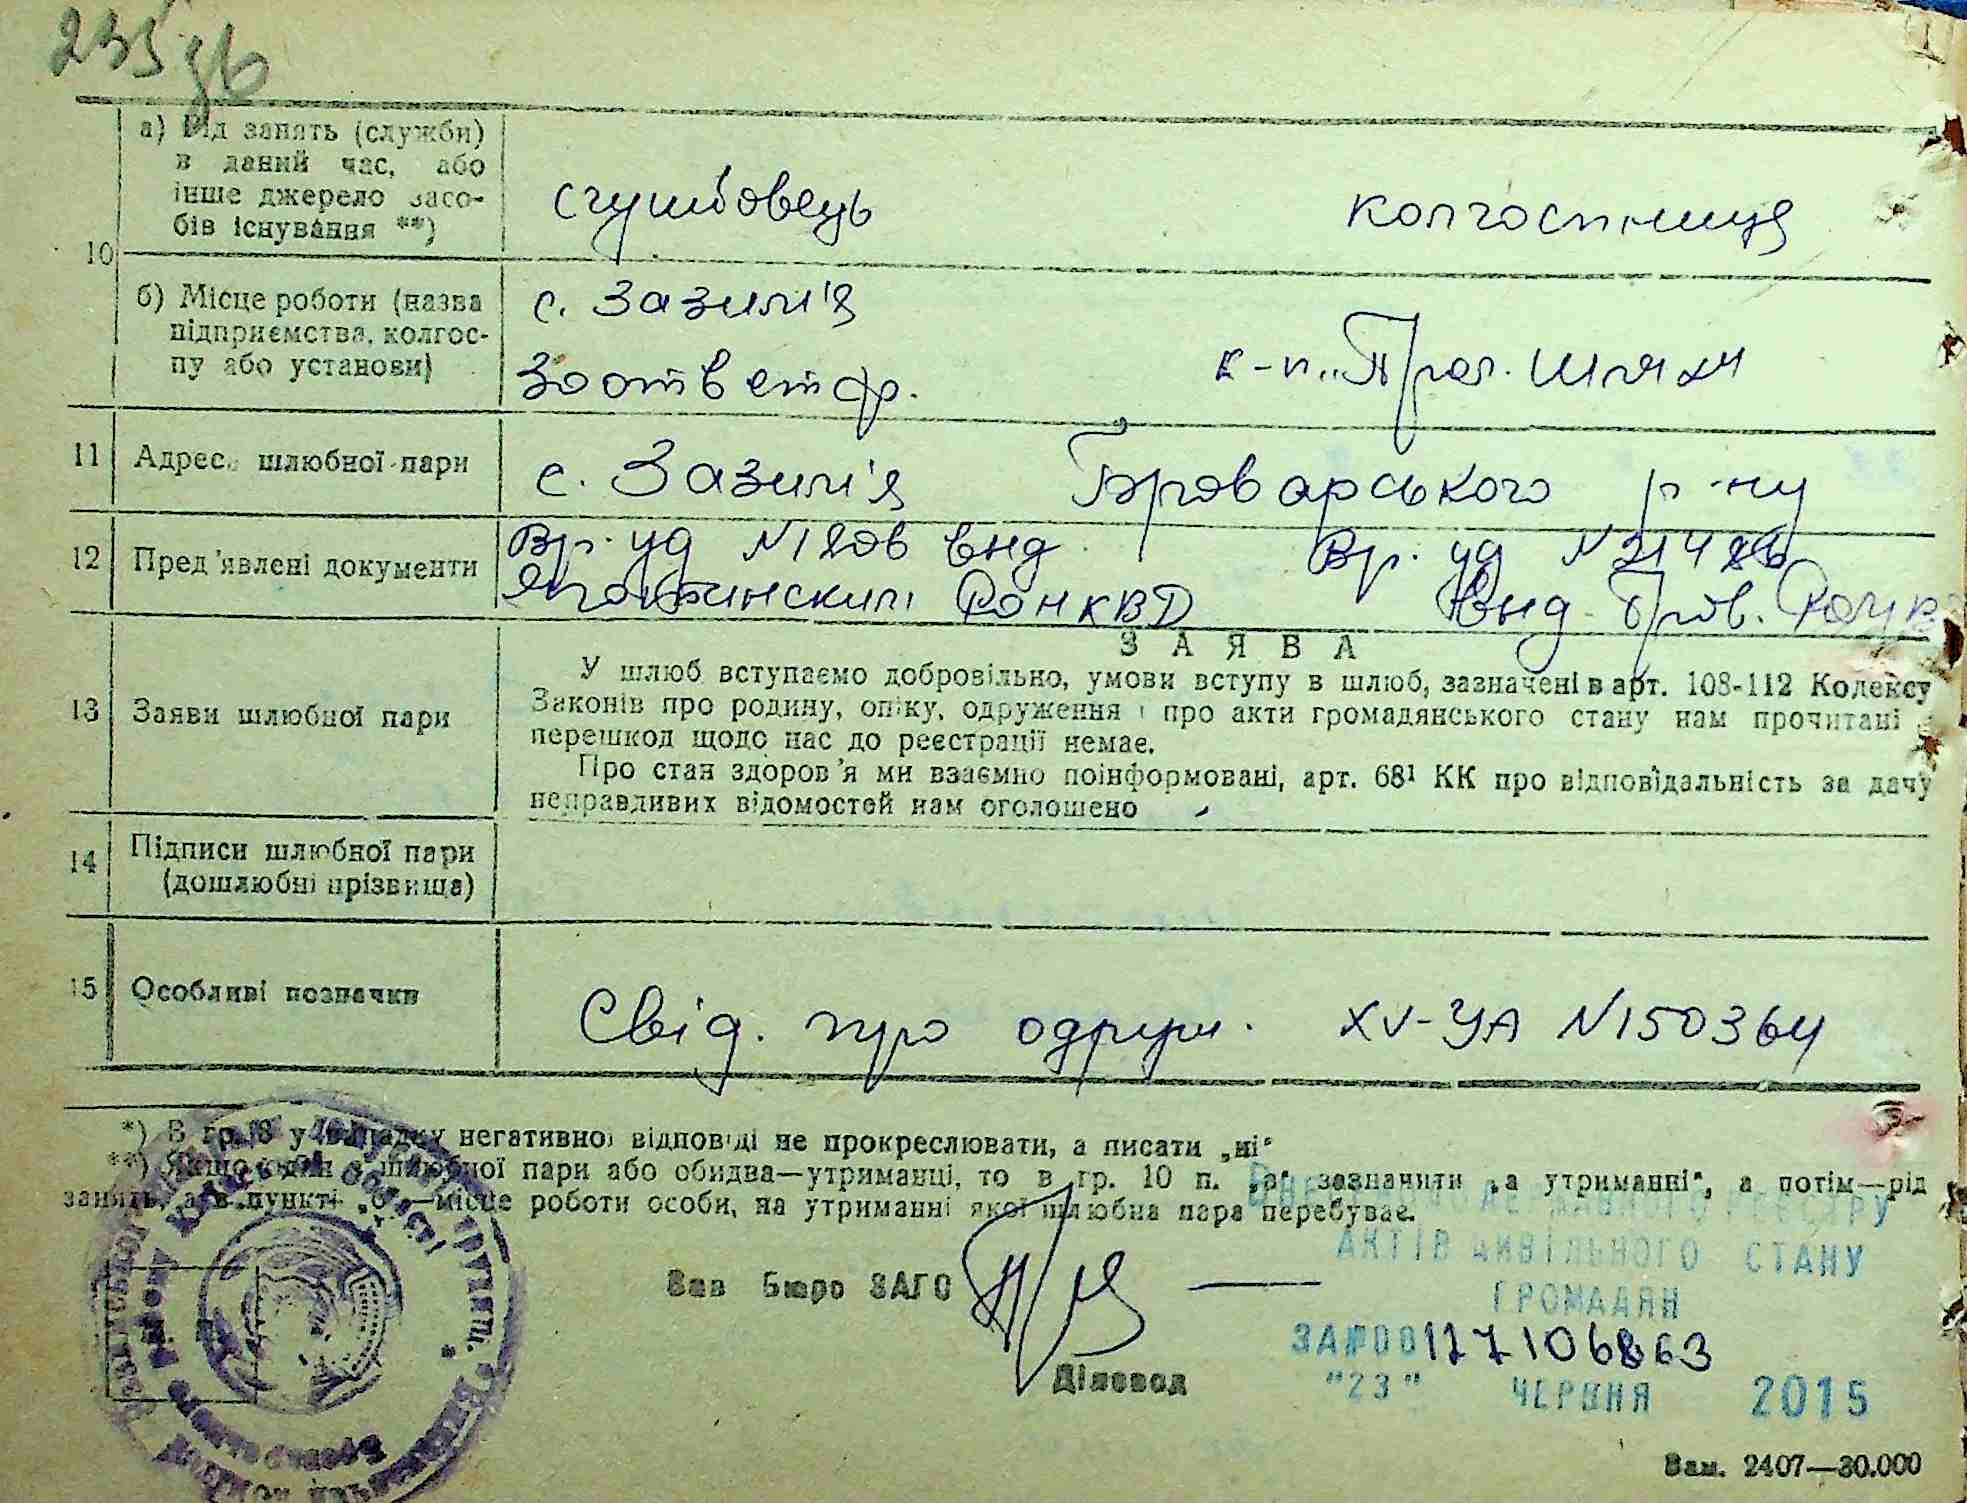 235
а) Від занять (служби) в даний час, або інше джерело засобів існування **)
службовець
колгоспниця
10
б) Місце роботи (назва підприємства, колгоспу або установи)
с. Зазим'я
Зоответф.
к-п „Прол. Шлях
11 Адреса шлюбної пари
с. Зазим'я Броварського р-ну
12 Пред'явлені документи
Вр. уд N1806 внд
Яготинским РОНКВД
Вр. уд N21486
Внд. Бров.
З А Я В А
13 Заяви шлюбної пари
У шлюб вступаємо добровільно, умови вступу в шлюб, зазначені в арт. 108-112 Кодексу
Законів про родину, опіку, одруження і про акти громадянського стану нам прочитані і
перешкод щодо нас до реєстрації немає.
Про стан здоров'я ми взаємно поінформовані, арт. 68¹ КК про відповідальність за дачу
неправдивих відомостей нам оголошено
14 Підписи шлюбної пари
(дошлюбні прізвища)
15 Особливі позначки
Свід. про одруж. XV-УА N150364
*) В гр. 8 у випадку негативної відповіді не прокреслювати, а писати „ні"
**) Якщо один з шлюбної пари або обидва—утриманці, то в гр. 10 п. „а" зазначити „а утриманні", а потім—рід
занять, а в пункті „б"—місце роботи особи, на утриманні якої шлюбна пара перебуває.
ДЕРЖАВНОГО РЕЄСТРУ
АКТІВ ЦИВІЛЬНОГО СТАНУ
ГРОМАДЯН
Зав Бюро ЗАГС
ЗА №00117106863
Діловод
"23" ЧЕРВНЯ 2015
Київської області
Броварського
Зам. 2407—30.000